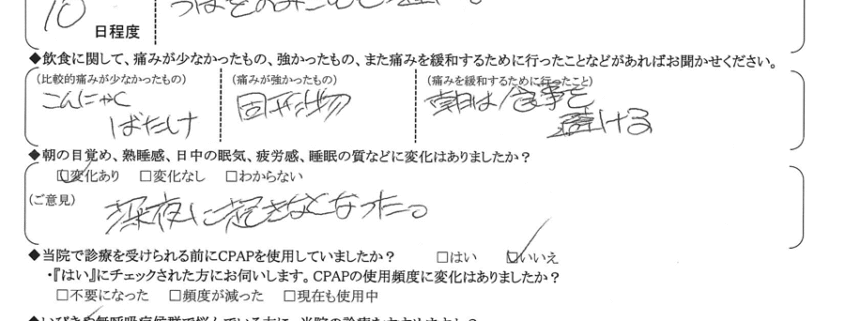 10
日程度
つばをのみこむも避ける。
◆飲食に関して、痛みが少なかったもの、強かったもの、また痛みを緩和するために行ったことなどがあればお聞かせください。
(比較的痛みが少なかったもの)
(痛みが強かったもの)
(痛みを緩和するために行ったこと)
こんにゃく
ばたけ
固形物
朝は食事を
避ける
◆朝の目覚め、熟睡感、日中の眠気、疲労感、睡眠の質などに変化はありましたか?
☑変化あり □変化なし □わからない
(ご意見)
深夜に起きなくなった。
◆当院で診療を受けられる前にCPAPを使用していましたか? □はい ☑いいえ
・『はい』にチェックされた方にお伺いします。CPAPの使用頻度に変化はありましたか?
□不要になった □頻度が減った □現在も使用中